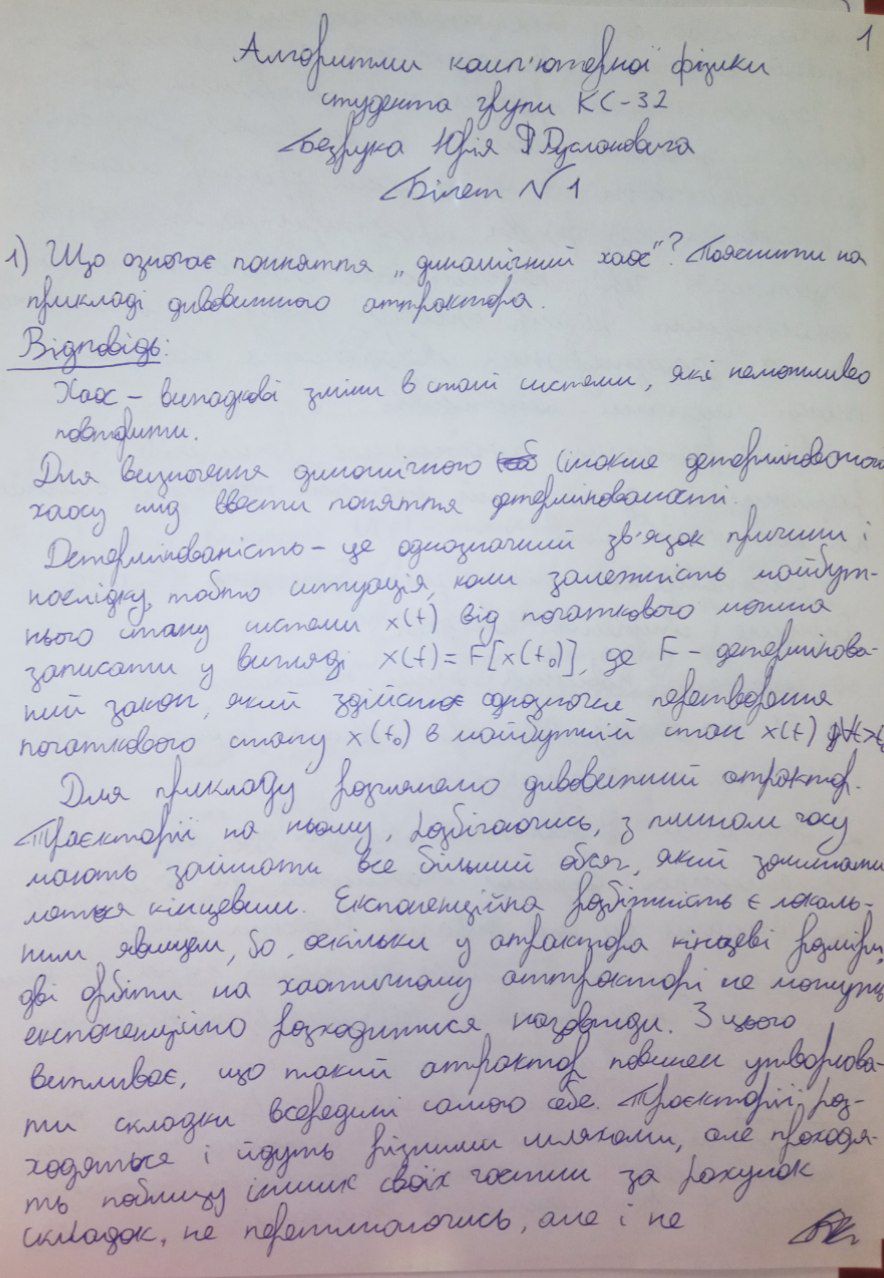 1
Алгоритми комп'ютерної фізики
студента групи КС-32
Безрука Юрія Руслановича
Білет №1
1) Що означає поняття „динамічний хаос"? Пояснити на
прикладі дивовижного аттрактора.
Відповідь:
Хаос – випадкові зміни в стані системи, які неможливо
повторити.
Для визначення динамічного (інакше детермінованого
хаосу слід ввести поняття детермінованості.
Детермінованість – це однозначний зв'язок причини і
наслідку, тобто ситуація, коли залежність майбут-
нього стану системи x(t) від початкового можна
записати у вигляді x(t) = F[x(t₀)], де F – детермінова-
ний закон, який здійснює однозначне перетворення
початкового стану x(t₀) в майбутній стан x(t)
Для прикладу розглянемо дивовижний атрактор.
Траєкторії на ньому, розбігаючись, з плином часу
мають займати все більший обсяг, який
кінцевим. Експоненційна розбіжність є локаль-
ним явищем, бо, оскільки у атрактора кінцеві розміри,
дві орбіти на хаотичному аттракторі не можуть
експоненційно розходитися назавжди. З цього
випливає, що такий атрактор повинен утворюва-
ти складки всередині самого себе. Траєкторії роз-
ходяться і йдуть різними шляхами, але проходя-
ть поблизу інших своїх частин за рахунок
складок, не перетинаючись, але і не